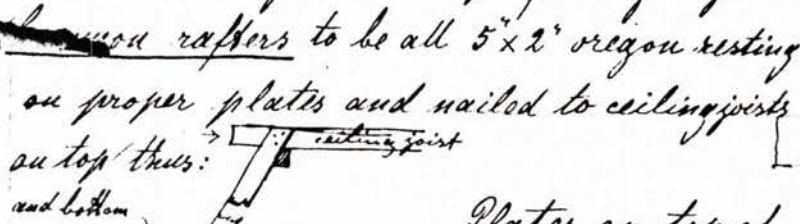 rafters to be all 5"x2" oregon resting
on proper plates and nailed to ceiling joists
on top thus:
ceiling joist
and bottom
Plates on top of